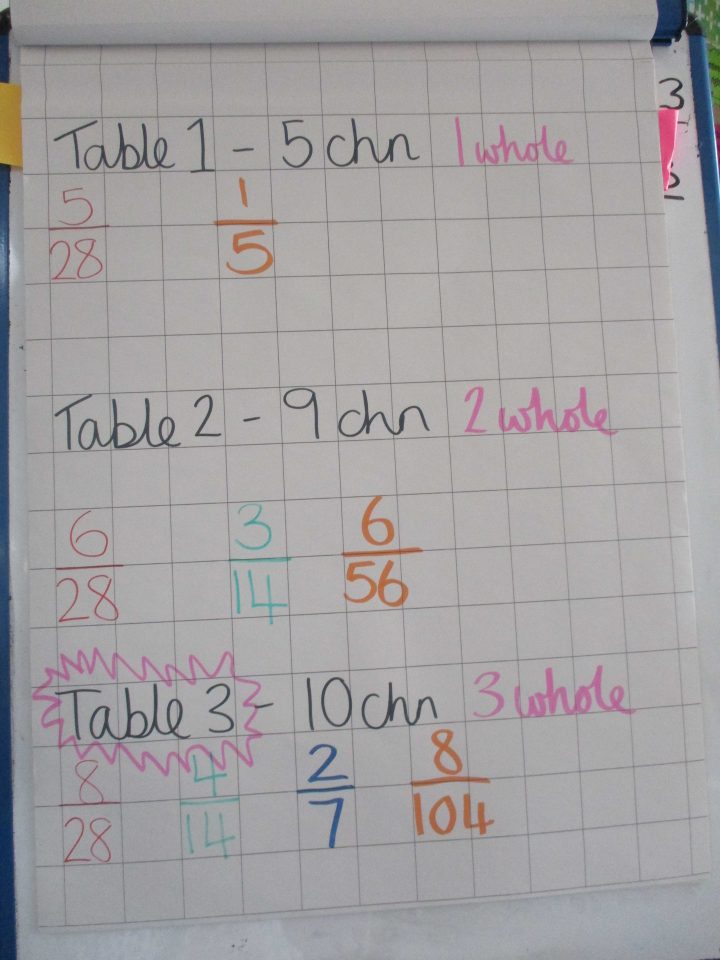 Table 1 - 5 chn 1 whole
5/28 1/5
Table 2 - 9 chn 2 whole
6/28 3/14 6/56
Table 3 - 10 chn 3 whole
8/28 4/14 2/7 8/104
3